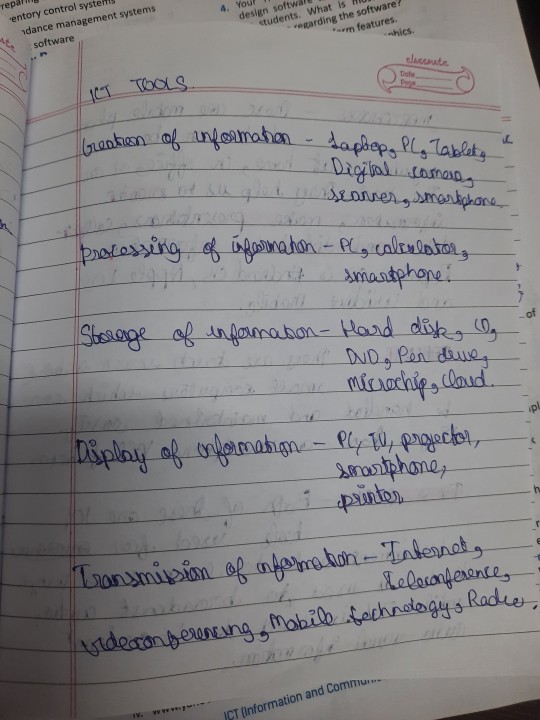 entory control systems
dance management systems
software
4. Your
design software
students. What is
regarding the software?
rm features.
classmate
Date
Page
ICT TOOLS
Creation of information - Laptop, PC, Tablet,
Digital camera,
scanner, smartphone
Processing of information - PC, calculator,
smartphone.
Storage of information - Hard disk, CD,
DVD, Pen drive,
microchip, cloud.
Display of information - PC, TV, projector,
smartphone,
printer
Transmission of information - Internet,
Teleconference,
videoconferencing, Mobile technology, Radio.
ICT (Information and Commun